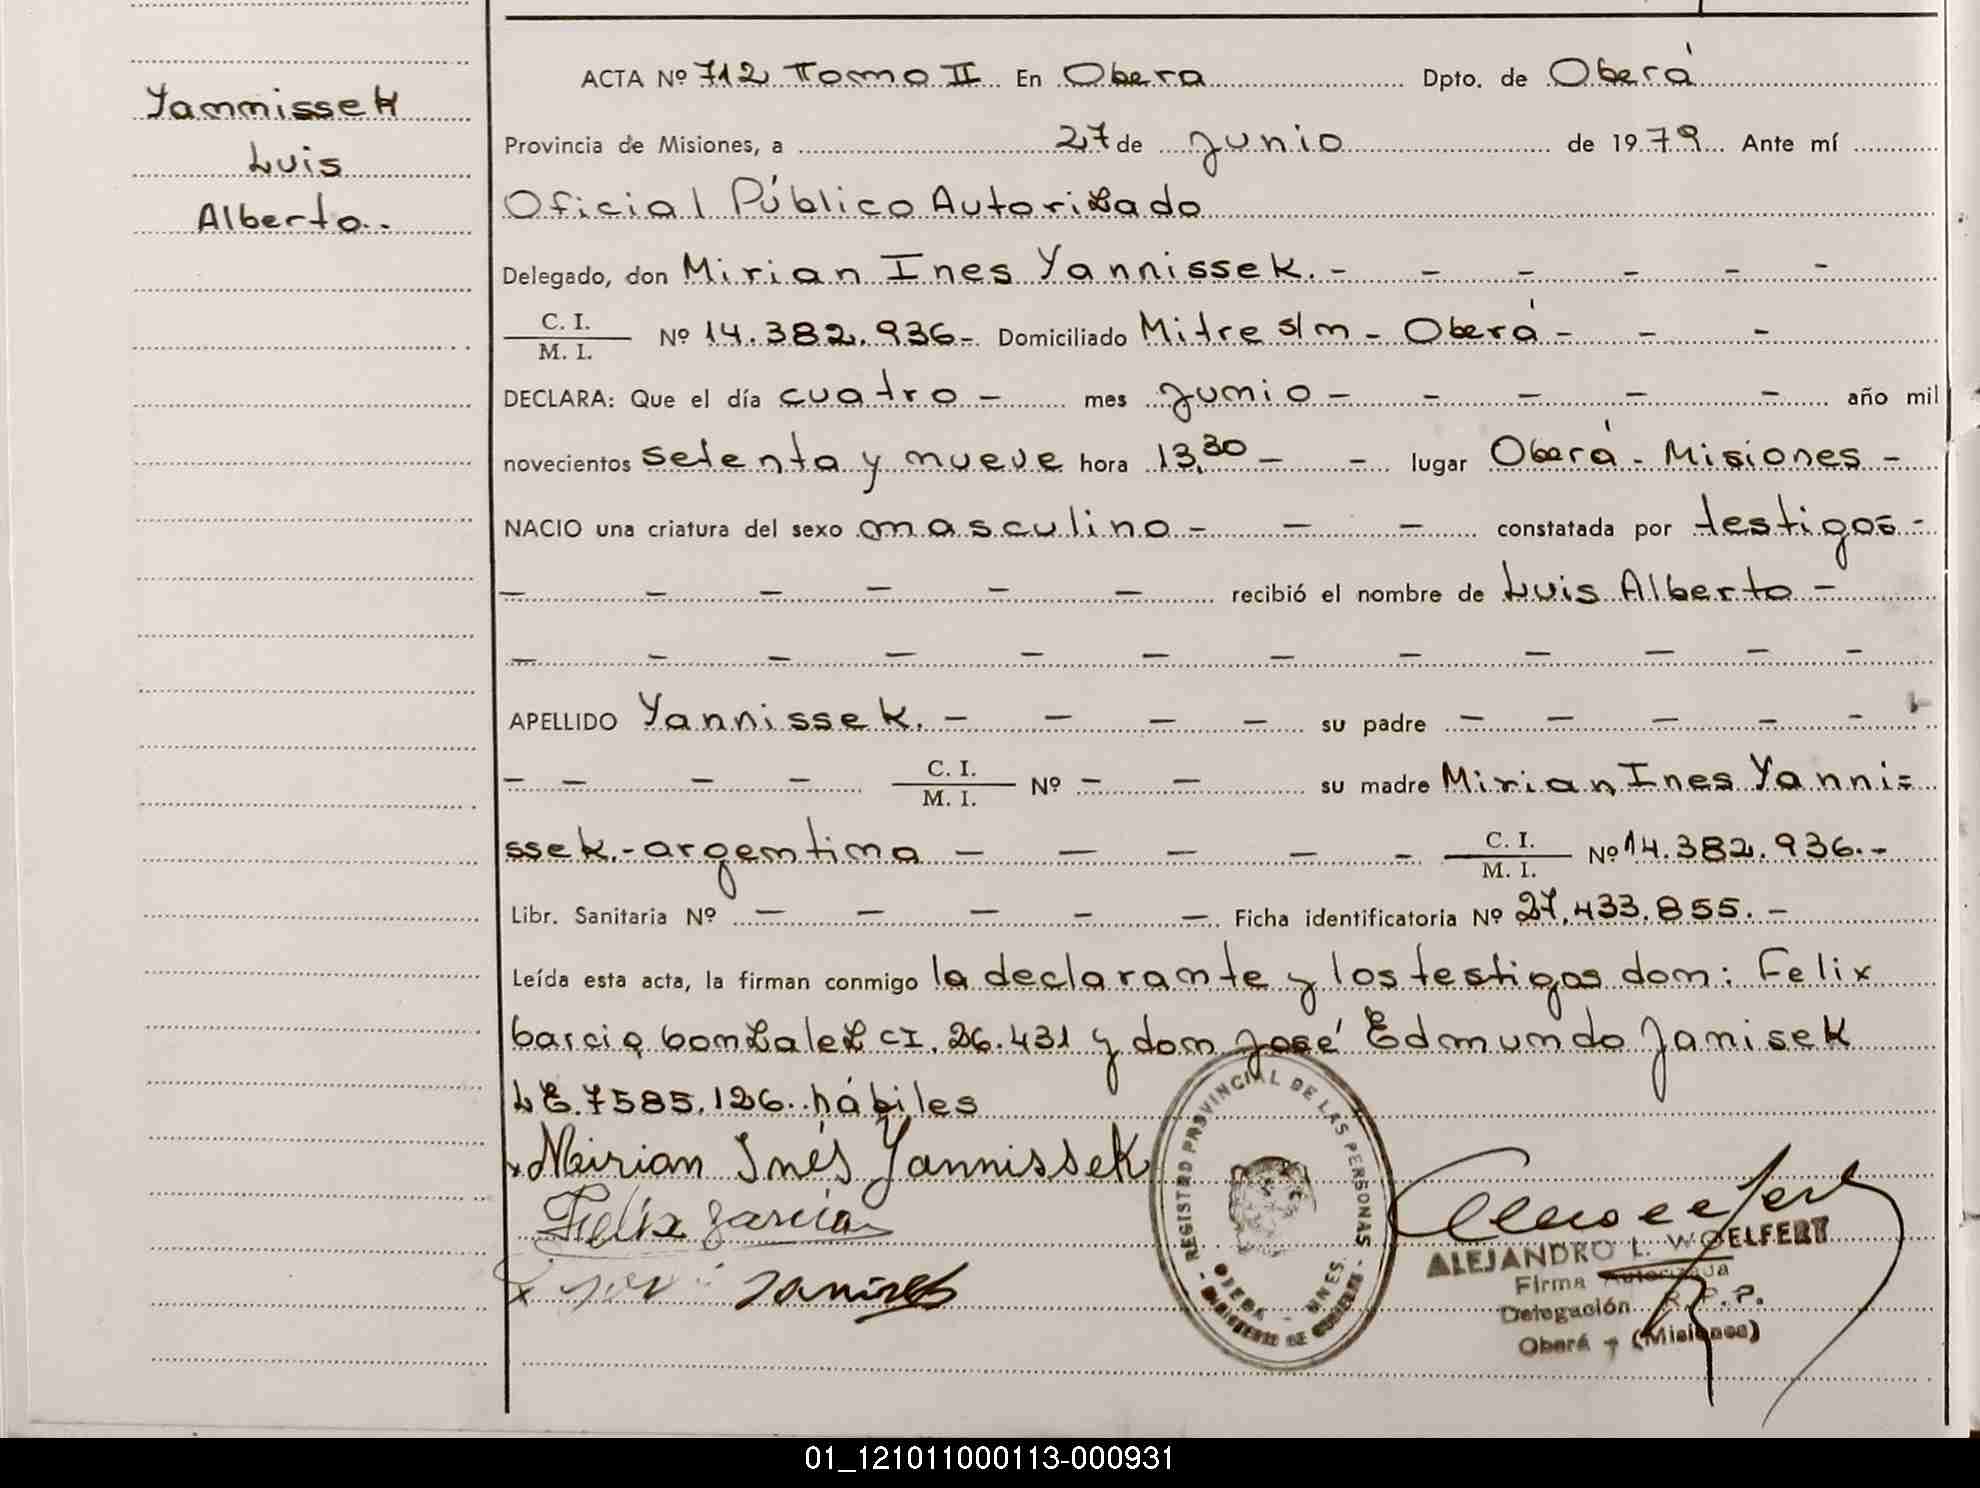 Yannissek
Luis
Alberto..
ACTA Nº 712 Tomo II En Obera Dpto. de Oberá
Provincia de Misiones, a 27 de junio de 1979 Ante mí
Oficial Público Autorizado
Delegado, don Mirian Ines Yannissek. - - - - - -
C. I.
M. I. Nº 14.382.936- Domiciliado Mitre s/n - Oberá - - -
DECLARA: Que el día cuatro - mes junio - - - - - año mil
novecientos setenta y nueve hora 13,30 - - lugar Oberá - Misiones -
NACIO una criatura del sexo masculino - - - constatada por testigos -
- - - - - - recibió el nombre de Luis Alberto -
- - - - - - - - - - - -
APELLIDO Yannissek. - - - - su padre - - - - -
- - - - C. I.
M. I. Nº - - su madre Mirian Ines Yanni=
ssek.-argentina - - - - - C. I.
M. I. Nº 14.382.936.-
Libr. Sanitaria Nº - - - - - Ficha identificatoria Nº 27.433.855. -
Leída esta acta, la firman conmigo la declarante y los testigos don: Felix
Garcia Gonzalez CI. 26.431 y don José Edmundo Janisek
LE. 7585.126. hábiles
x Mirian Inés Yannissek
Felix Garcia
x
REGISTRO PROVINCIAL DE LAS PERSONAS
ALEJANDRO L. WOELFERT
Firma Autorizada
Delegación R. P. P.
Oberá - (Misiones)
01_121011000113-000931